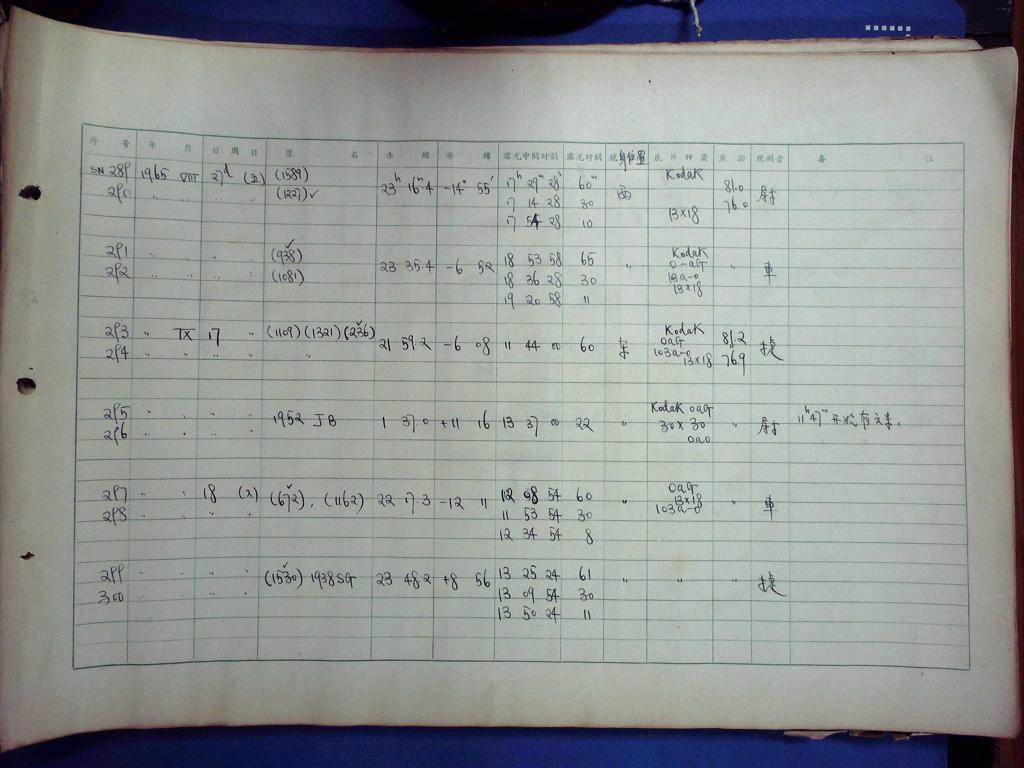 序 号 年 月 日 周 日 星 名 赤 经 赤 纬 露光中间时刻 露光时间 镜身位置 底 片 种 类 焦 距 观测者 备 注
SN 289 1965 VIII 27d (五) (1589) Kodak
290 〃 〃 〃 〃 (1227)✓ 23h 16m.4 -14° 55′ 17h 29m 28s 60m 西 81.0
17 14 28 30 76.0
17 54 28 10 13×18
291 〃 〃 〃 〃 (938)✓ 18 53 58 65 Kodak
292 〃 〃 〃 〃 (1081) 23 35.4 -6 52 18 36 28 30 〃 0-aG 〃 車
19 20 58 11 13×18
293 〃 IX 17 〃 (1109) (1321) (236)✓ Kodak
294 〃 〃 〃 〃 〃 21 59.2 -6 08 11 44 00 60 东 0aG 81.2
103a-0 13×18 76.9
295 〃 〃 〃 〃 Kodak 0aG
296 〃 〃 〃 〃 1952 JB 1 37.0 +11 16 13 37 00 22 〃 30×30 〃 11h47m
0a0
297 〃 〃 18 (六) (672)✓, (1162) 22 17.3 -12 11 12 08 54 60 〃 0aG 〃 車
298 〃 〃 〃 〃 11 53 54 30 13×18
12 34 54 8 103a-0
299 〃 〃 〃 〃 (1530)✓ 1938SG 23 48.2 +8 56 13 25 24 61 〃 〃 〃
300 〃 〃 〃 〃 13 09 54 30
13 50 24 11